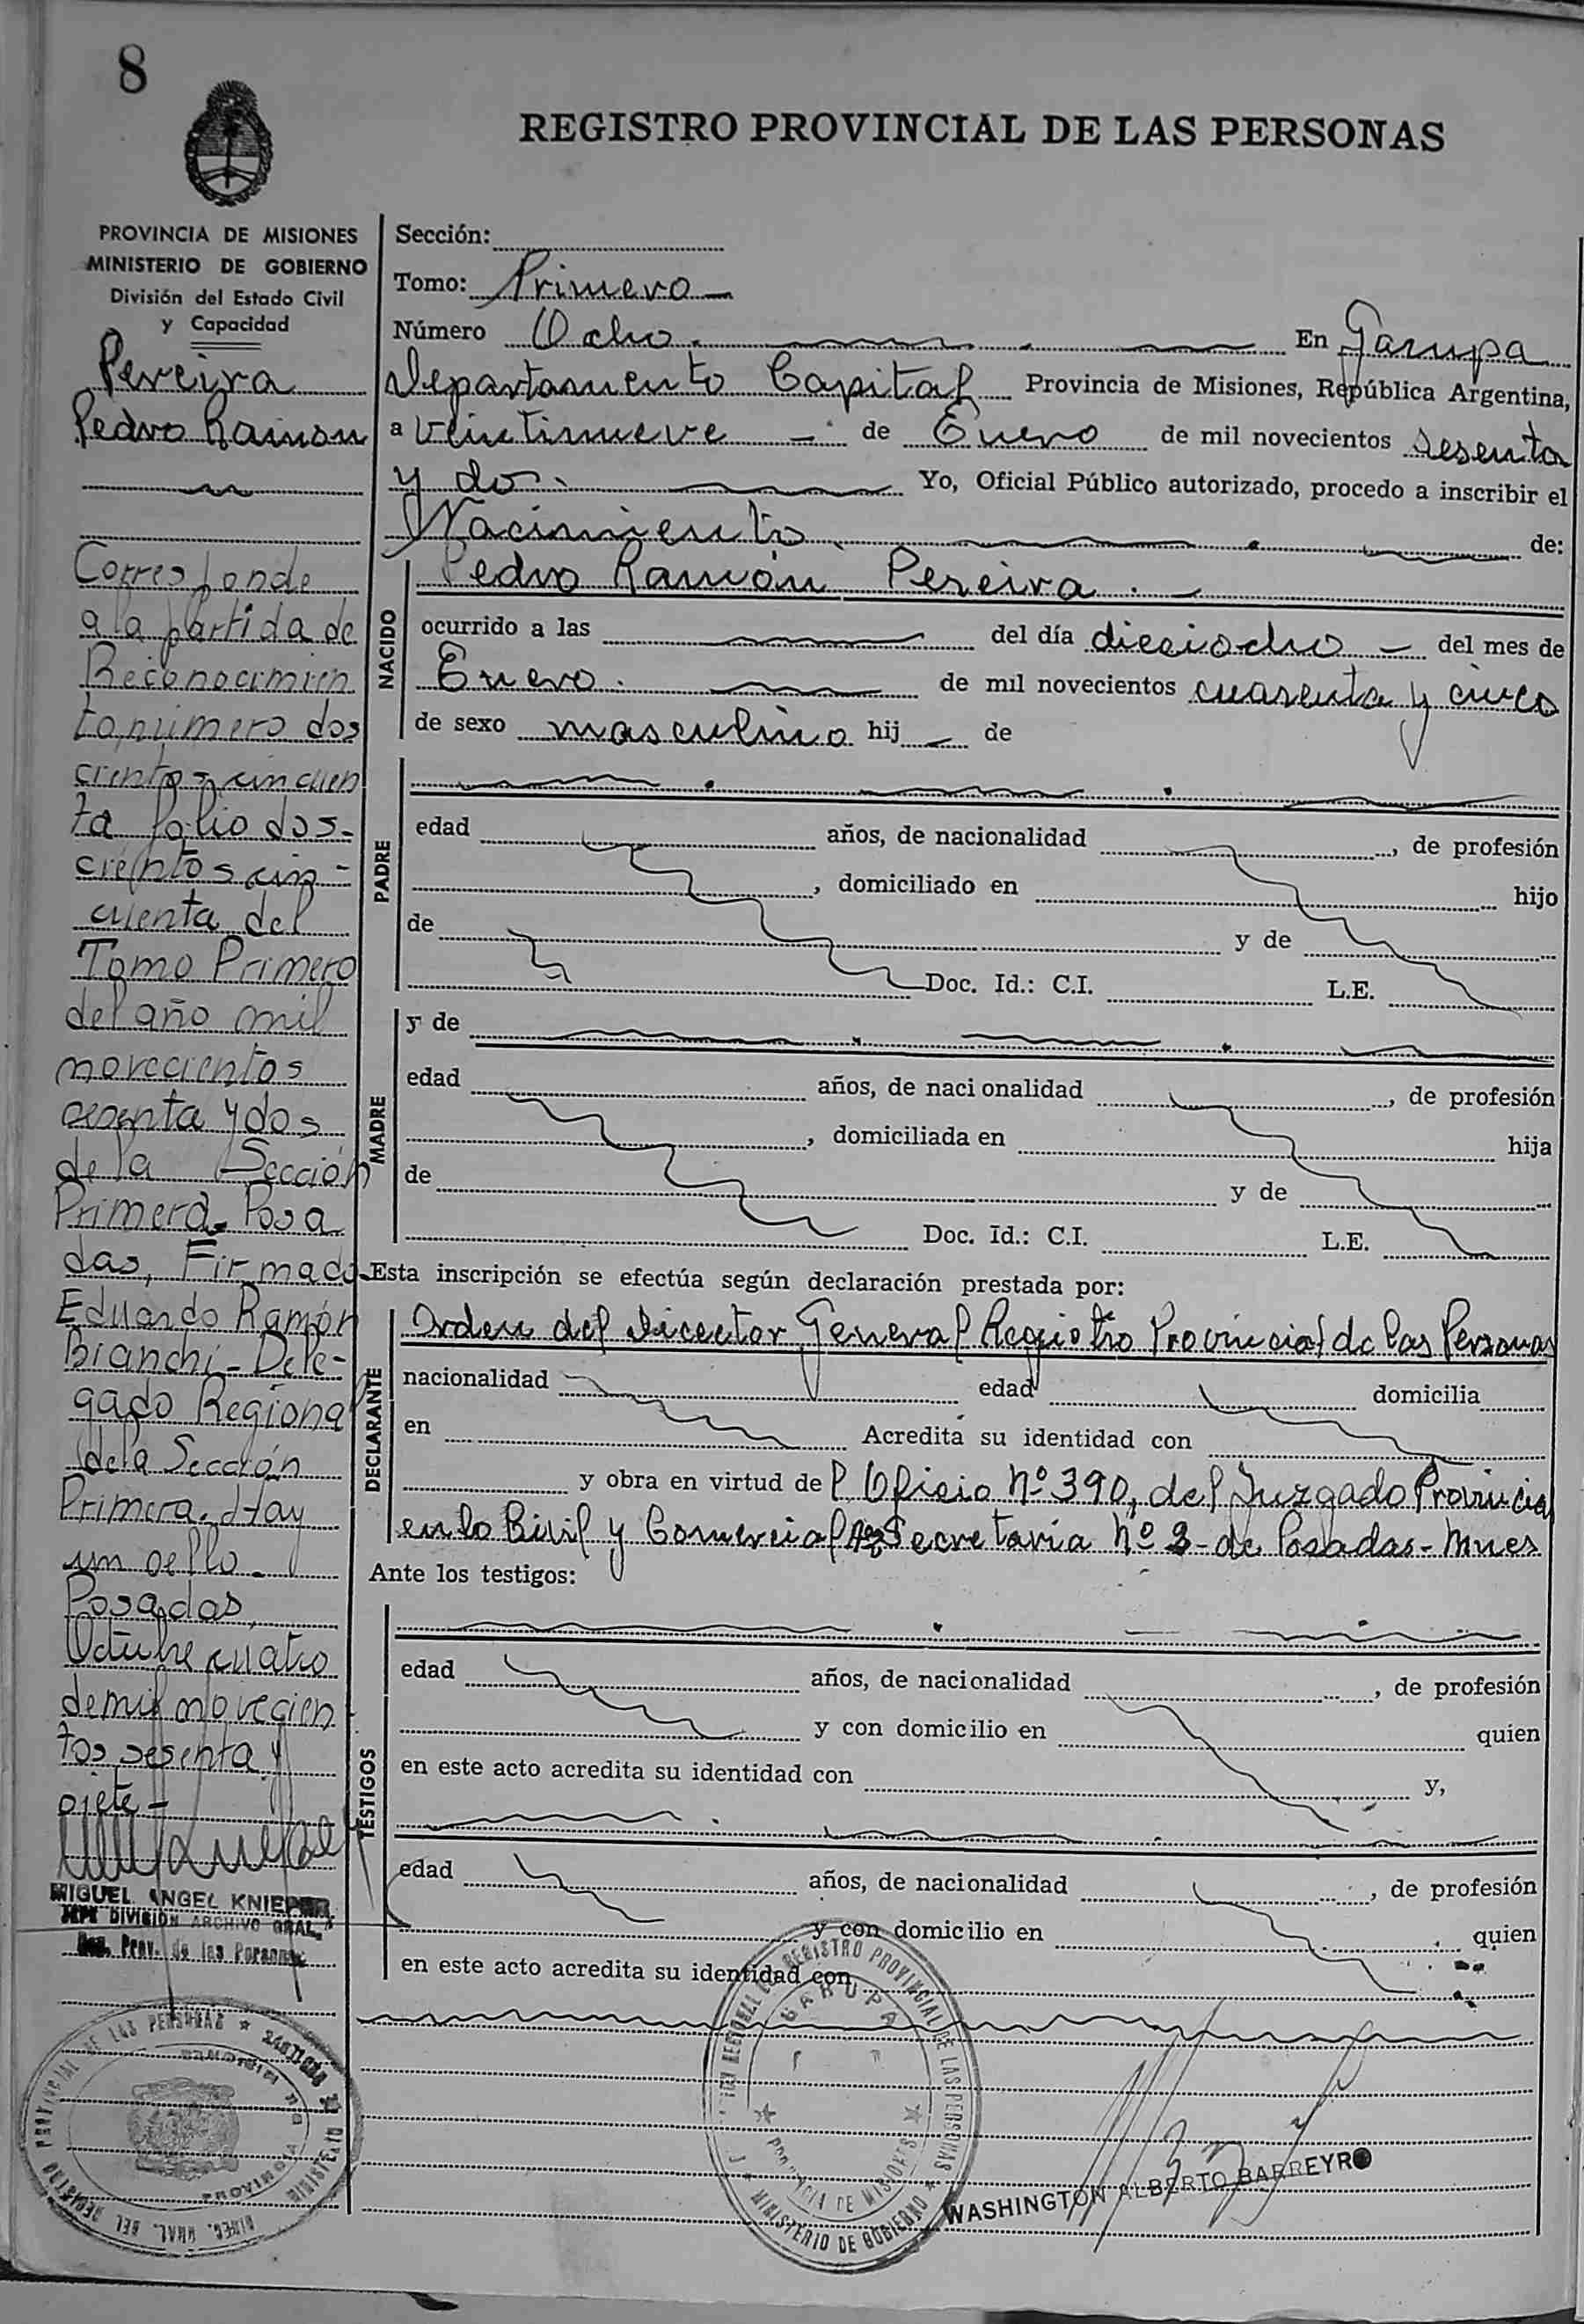 8
REGISTRO PROVINCIAL DE LAS PERSONAS
PROVINCIA DE MISIONES
MINISTERIO DE GOBIERNO
División del Estado Civil
y Capacidad
Pereira
Pedro Ramon
Corresponde
a la partida de
Reconocimien
to, número dos
cientos cincuen
ta folio dos-
cientos cin-
cuenta del
Tomo Primero
del año mil
novecientos
sesenta y dos
de la Sección
Primera. Posa
das, Firmado
Eduardo Ramón
Bianchi - Dele-
gado Regional
de la Sección
Primera. Hay
un sello.
Posadas,
Octubre cuatro
de mil novecien
tos sesenta y
siete -
MIGUEL ANGEL KNIEPER
JEFE DIVISIÓN ARCHIVO GRAL.
Reg. Prov. de las Personas
Sección:
Tomo: Primero
Número Ocho. En Garupa
Departamento Capital Provincia de Misiones, República Argentina,
a veintinueve de Enero de mil novecientos sesenta
y dos. Yo, Oficial Público autorizado, procedo a inscribir el
Nacimiento de:
NACIDO
Pedro Ramón Pereira
ocurrido a las del día dieciocho del mes de
Enero. de mil novecientos cuarenta y cinco
de sexo masculino hij de
PADRE
edad años, de nacionalidad , de profesión
, domiciliado en hijo
de y de
Doc. Id.: C.I. L.E.
MADRE
y de
edad años, de naci onalidad , de profesión
, domiciliada en hija
de y de
Doc. Id.: C.I. L.E.
Esta inscripción se efectúa según declaración prestada por:
DECLARANTE
Orden del Director General Registro Provincial de las Personas
nacionalidad edad domicilia
en Acredita su identidad con
y obra en virtud del Oficio Nº 390, del Juzgado Provincial
en lo Civil y Comercial Secretaria Nº 2 - de Posadas - Mnes
Ante los testigos:
TESTIGOS
edad años, de nacionalidad , de profesión
y con domicilio en quien
en este acto acredita su identidad con y,
edad años, de nacionalidad , de profesión
y con domicilio en quien
en este acto acredita su identidad con
REGISTRO PROVINCIAL DE LAS PERSONAS
GARUPA
PROVINCIA DE MISIONES
MINISTERIO DE GOBIERNO
WASHINGTON ALBERTO BARREYRO